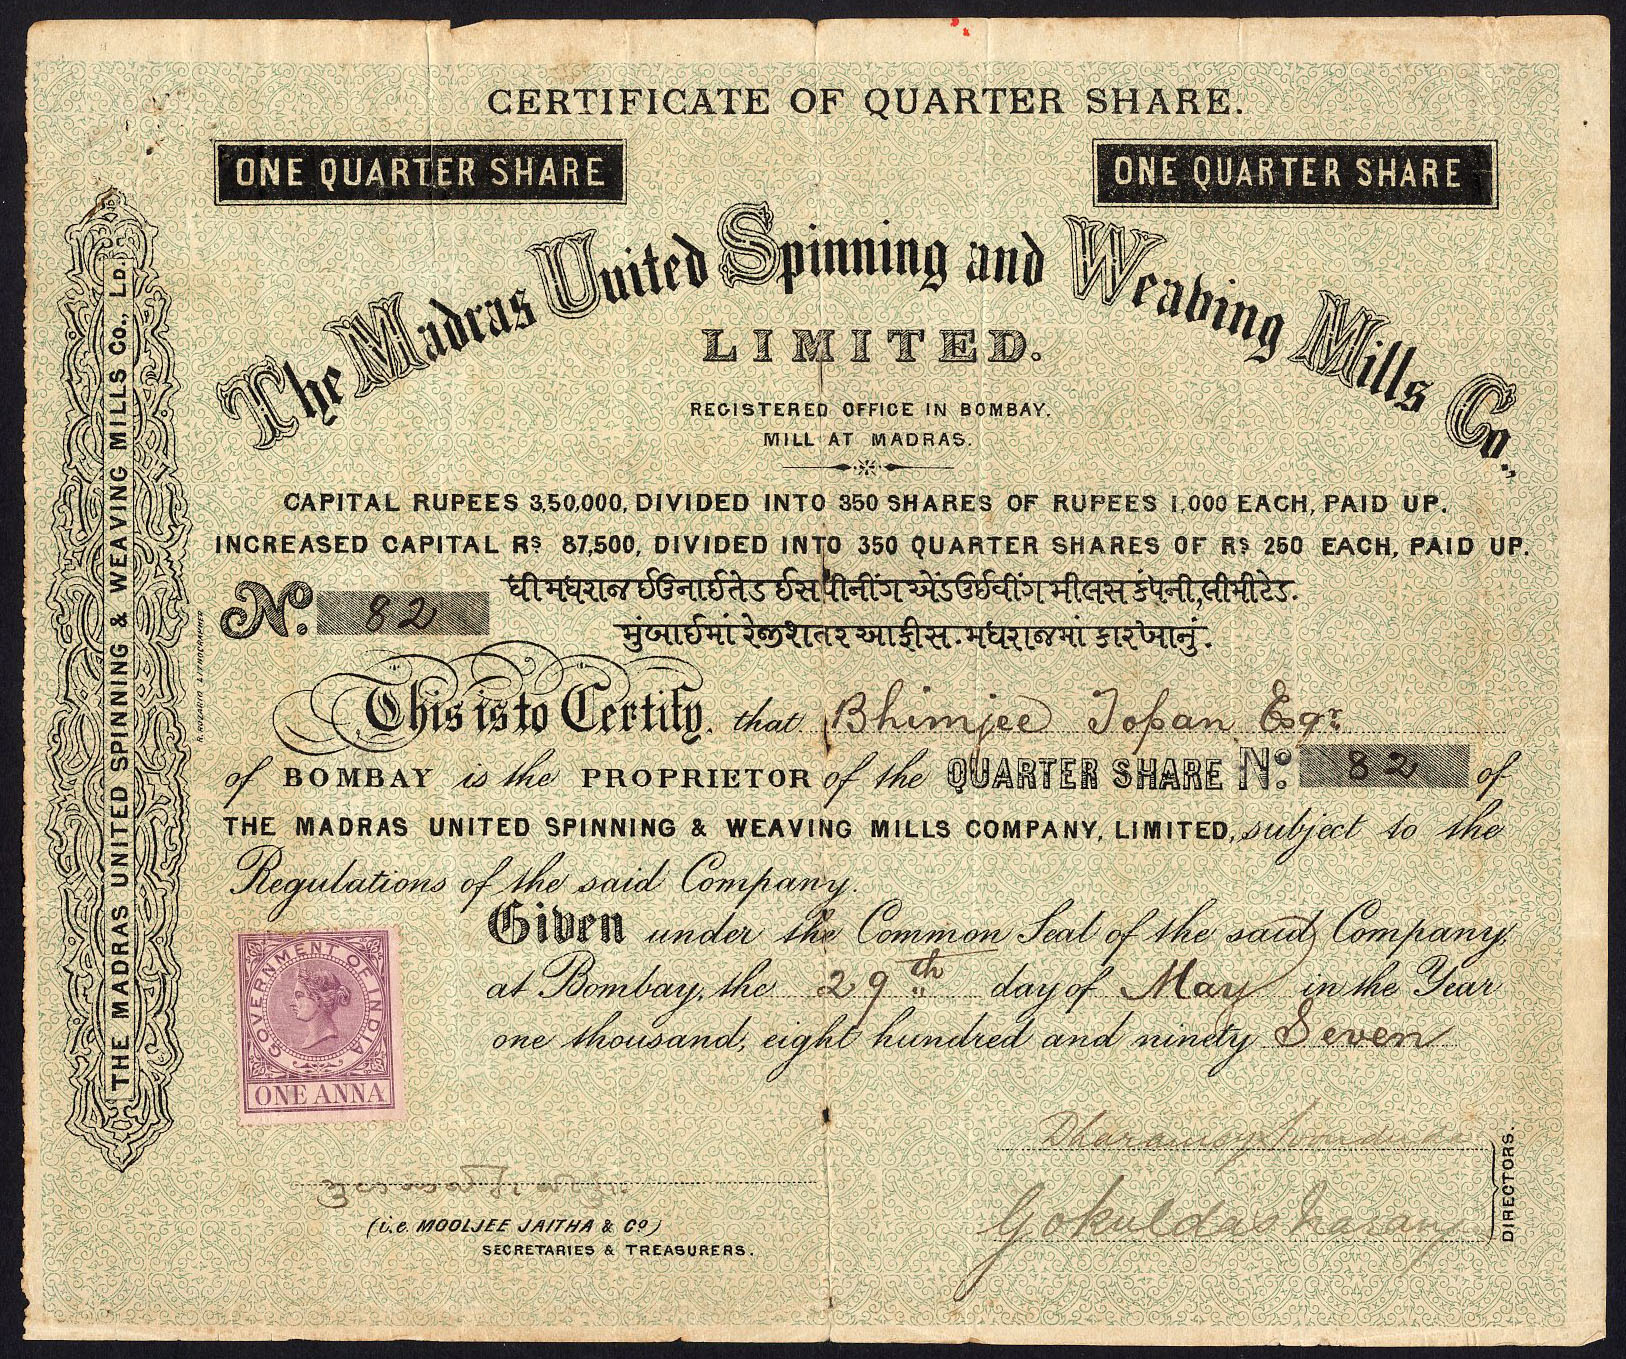 CERTIFICATE OF QUARTER SHARE.
ONE QUARTER SHARE
ONE QUARTER SHARE
The Madras United Spinning and Weaving Mills Co.,
LIMITED.
REGISTERED OFFICE IN BOMBAY.
MILL AT MADRAS.
CAPITAL RUPEES 3,50,000, DIVIDED INTO 350 SHARES OF RUPEES 1,000 EACH, PAID UP.
INCREASED CAPITAL Rs 87,500, DIVIDED INTO 350 QUARTER SHARES OF Rs 250 EACH, PAID UP.
ધી મધરાજ ઈઉનાઈતેડ ઈસપીનીંગ એંડ ઉઈવીંગ મીલસ કંપની, લીમીટેડ.
No. 82
મુંબાઈમાં રેજીશતર આફીસ. મધરાજમાં કારખાનું.
This is to Certify, that Bhimjee Topan Esqr.
of BOMBAY is the PROPRIETOR of the QUARTER SHARE No. 82 of
THE MADRAS UNITED SPINNING & WEAVING MILLS COMPANY, LIMITED, subject to the
Regulations of the said Company.
Given under the Common Seal of the said Company,
at Bombay, the 29th day of May in the Year
one thousand, eight hundred and ninety Seven
GOVERNMENT OF INDIA
ONE ANNA
Gokuldas
DIRECTORS.
(i.e. MOOLJEE JAITHA & Co)
SECRETARIES & TREASURERS.
THE MADRAS UNITED SPINNING & WEAVING MILLS Co., LD.
R. ROZARIO LITHOGRAPHER